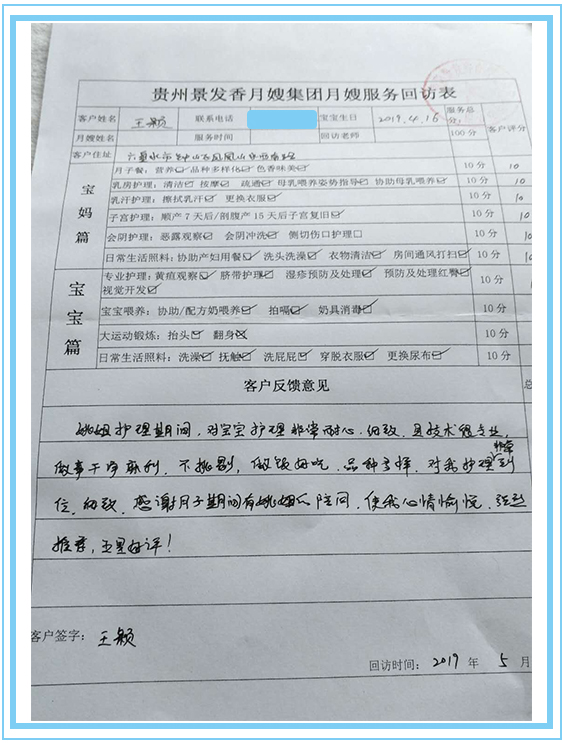 贵州景发香月嫂集团月嫂服务回访表
客户姓名 王颖 联系电话 宝宝生日 2019.4.16 服务总分: 客户评分
月嫂姓名 服务时间 回访老师 100分
客户住址 六盘水市钟山区凤凰山
宝妈篇
月子餐: 营养☑ 品种多样化☑ 色香味美☑ 10分 10
乳房护理: 清洁☑ 按摩☑ 疏通☑ 母乳喂养姿势指导☑ 协助母乳喂养☑ 10分 10
乳汗护理: 擦拭乳汗☑ 更换衣服☑ 10分 10
子宫护理: 顺产7天后/剖腹产15天后子宫复旧☑ 10分 10
会阴护理: 恶露观察☑ 会阴冲洗☑ 侧切伤口护理□ 10分 10
日常生活照料: 协助产妇用餐☑ 洗头洗澡☑ 衣物清洁☑ 房间通风打扫☑ 10分 10
宝宝篇
专业护理: 黄疸观察☑ 脐带护理☑ 湿疹预防及处理☑ 预防及处理红臀☑ 10分
视觉开发☑
宝宝喂养: 协助/配方奶喂养☑ 拍嗝☑ 奶具消毒☑ 10分
大运动锻炼: 抬头☑ 翻身☑ 10分
日常生活照料: 洗澡☑ 抚触☑ 洗屁屁☑ 穿脱衣服☑ 更换尿布☑ 10分
客户反馈意见 总
姚姐护理期间,对宝宝护理非常耐心,细致,且技术很专业,
做事干净麻利,不挑剔,做饭好吃,品种多样,对我护理非常到
位,细致,感谢月子期间有姚姐的陪同,使我心情愉悦,强烈
推荐,五星好评!
客户签字: 王颖
回访时间: 2019 年 5 月